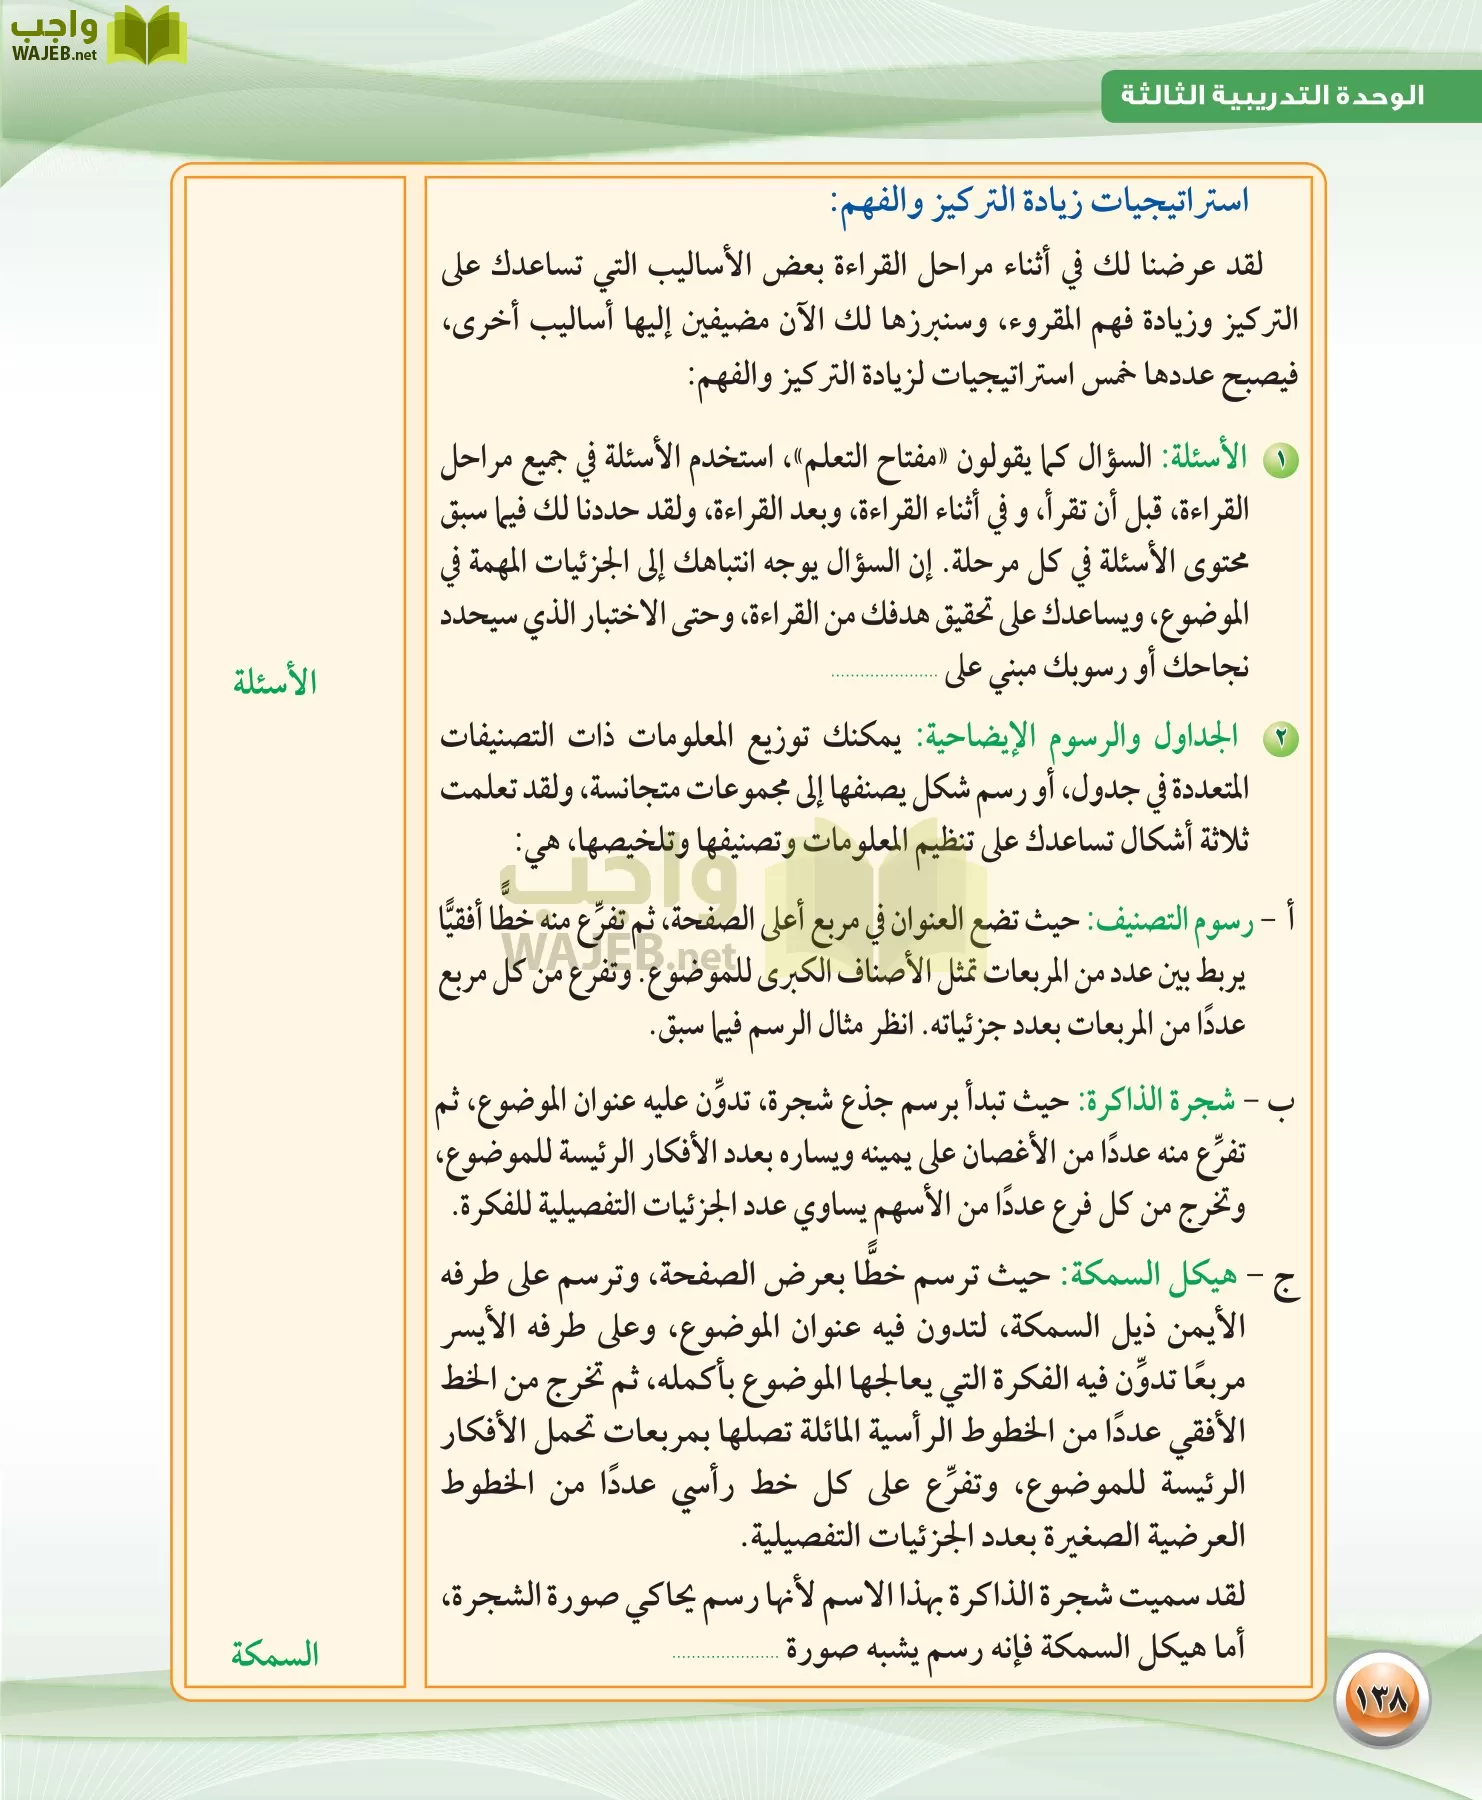 واجب
WAJEB.net
الوحدة التدريبية الثالثة
استراتيجيات زيادة التركيز والفهم:
لقد عرضنا لك في أثناء مراحل القراءة بعض الأساليب التي تساعدك على
التركيز وزيادة فهم المقروء، وسنبرزها لك الآن مضيفين إليها أساليب أخرى،
فيصبح عددها خمس استراتيجيات لزيادة التركيز والفهم:
١ الأسئلة: السؤال كما يقولون «مفتاح التعلم»، استخدم الأسئلة في جميع مراحل
القراءة، قبل أن تقرأ، و في أثناء القراءة، وبعد القراءة، ولقد حددنا لك فيما سبق
محتوى الأسئلة في كل مرحلة. إن السؤال يوجه انتباهك إلى الجزئيات المهمة في
الموضوع، ويساعدك على تحقيق هدفك من القراءة، وحتى الاختبار الذي سيحدد
نجاحك أو رسوبك مبني على ......................
الأسئلة
٢ الجداول والرسوم الإيضاحية: يمكنك توزيع المعلومات ذات التصنيفات
المتعددة في جدول، أو رسم شكل يصنفها إلى مجموعات متجانسة، ولقد تعلمت
ثلاثة أشكال تساعدك على تنظيم المعلومات وتصنيفها وتلخيصها، هي:
أ – رسوم التصنيف: حيث تضع العنوان في مربع أعلى الصفحة، ثم تفرِّع منه خطًّا أفقيًّا
يربط بين عدد من المربعات تمثل الأصناف الكبرى للموضوع. وتفرع من كل مربع
عددًا من المربعات بعدد جزئياته. انظر مثال الرسم فيما سبق.
واجب
WAJEB.net
ب – شجرة الذاكرة: حيث تبدأ برسم جذع شجرة، تدوِّن عليه عنوان الموضوع، ثم
تفرِّع منه عددًا من الأغصان على يمينه ويساره بعدد الأفكار الرئيسة للموضوع،
وتخرج من كل فرع عددًا من الأسهم يساوي عدد الجزئيات التفصيلية للفكرة.
ج – هيكل السمكة: حيث ترسم خطًّا بعرض الصفحة، وترسم على طرفه
الأيمن ذيل السمكة، لتدون فيه عنوان الموضوع، وعلى طرفه الأيسر
مربعًا تدوِّن فيه الفكرة التي يعالجها الموضوع بأكمله، ثم تخرج من الخط
الأفقي عددًا من الخطوط الرأسية المائلة تصلها بمربعات تحمل الأفكار
الرئيسة للموضوع، وتفرِّع على كل خط رأسي عددًا من الخطوط
العرضية الصغيرة بعدد الجزئيات التفصيلية.
لقد سميت شجرة الذاكرة بهذا الاسم لأنها رسم يحاكي صورة الشجرة،
أما هيكل السمكة فإنه رسم يشبه صورة ......................
السمكة
١٣٨